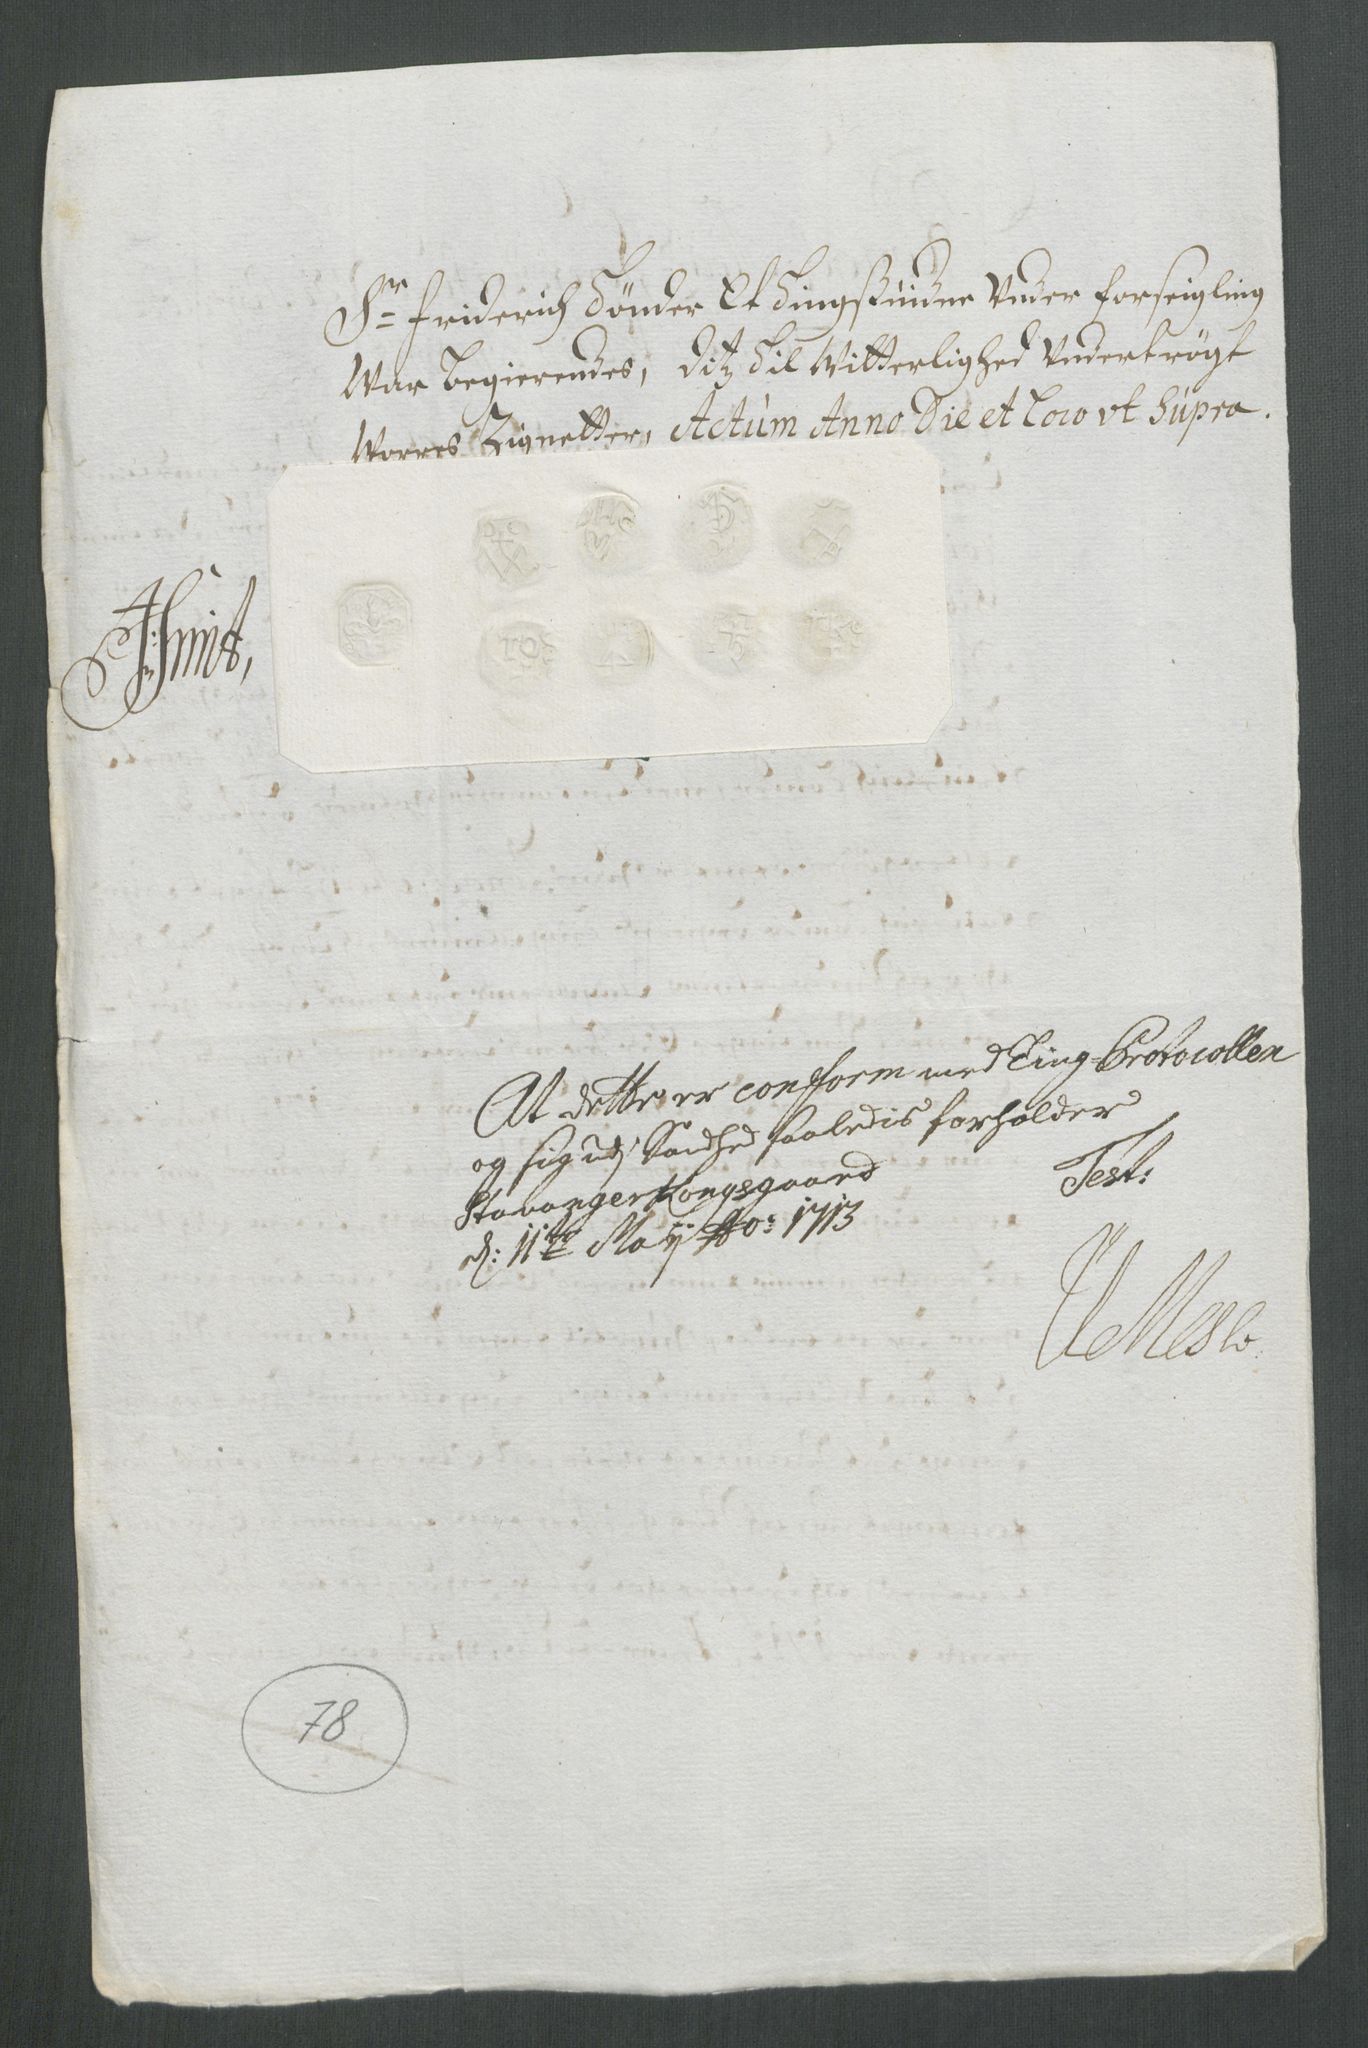 Sr: Friderich Sønder Et Tingsvidne Under forseigling
War begierendes, ditz til Witterlighed Undertrögt
Worres Zignetter, Actum Anno Die et Loco ut Supra.
At dette er conform med Ting-Protocollen
og sig udj Sandhed saaledis forholder
Stavanger Kongsgaard
d: 11te Maÿ Ao: 1713
Test:
78